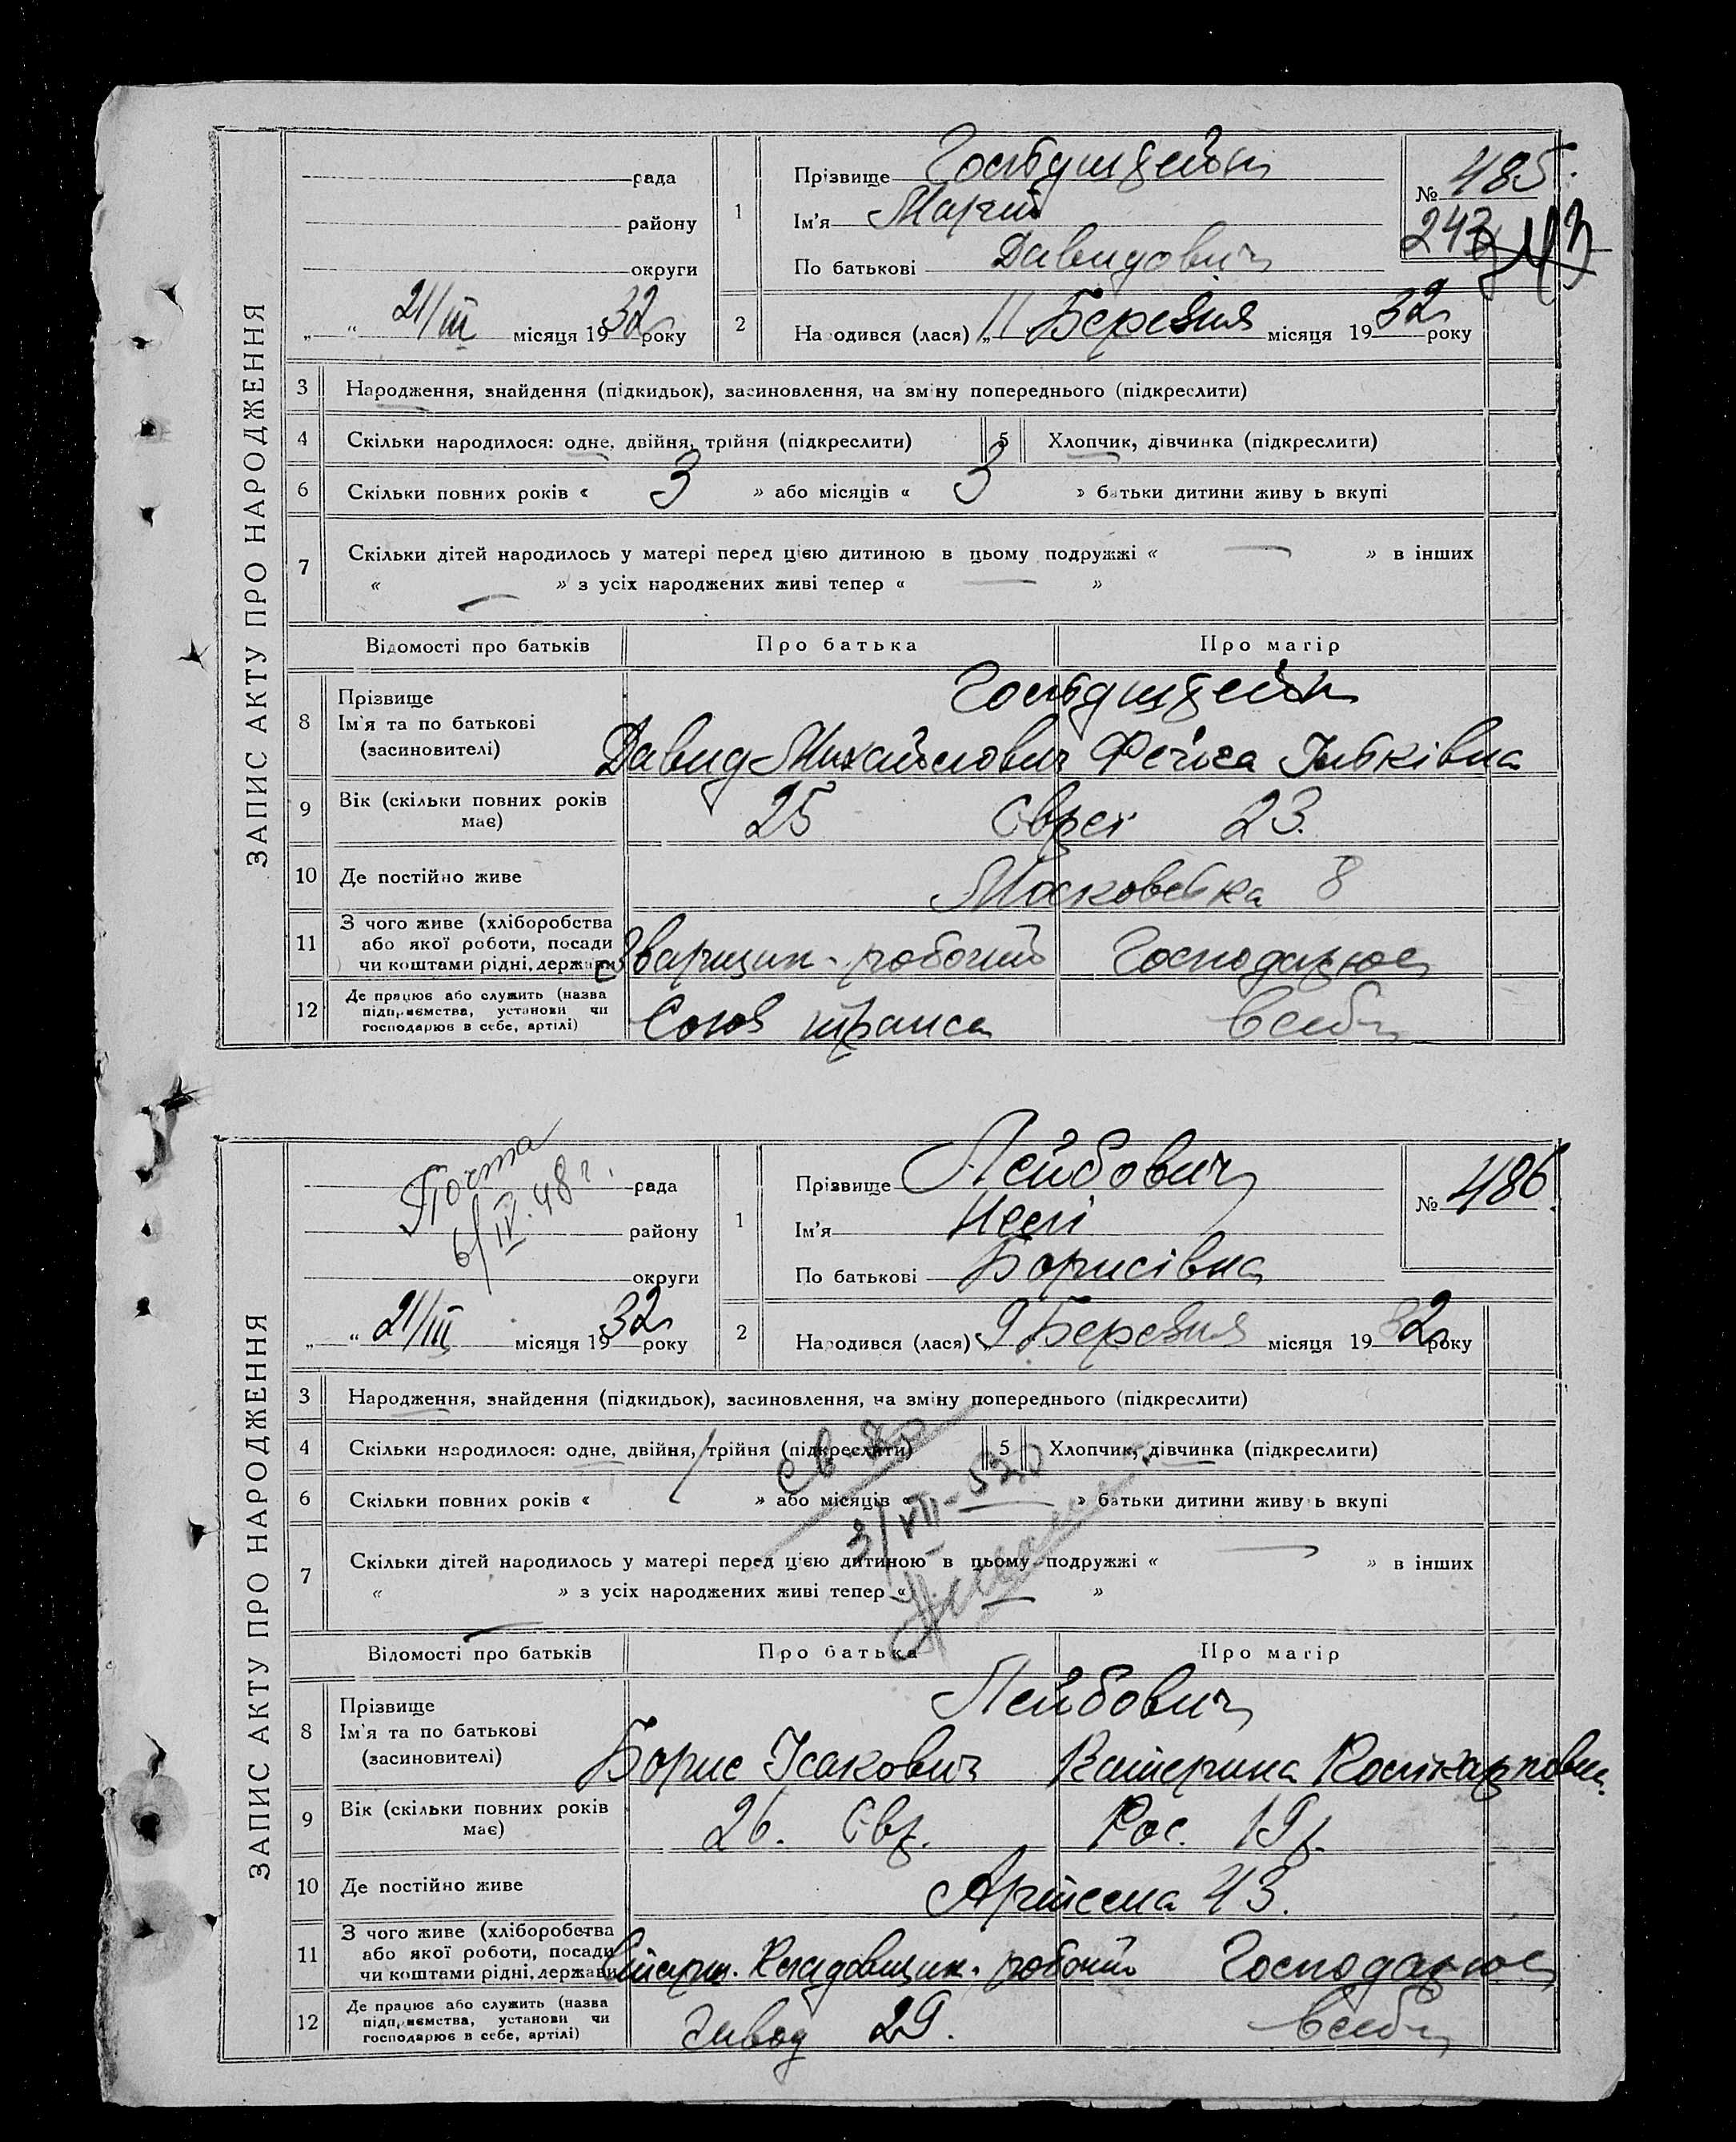 ЗАПИС АКТУ ПРО НАРОДЖЕННЯ
рада
району
округи
„ “ 21/III місяця 1932 року
1
Прізвище Гольдштейн
Ім'я
По батькові Давидович
№ 485
243
2
Народився (лася) „ 11 Березня місяця 1932 року
3 Народження, знайдення (підкидьок), засиновлення, на зміну попереднього (підкреслити)
4 Скільки народилося: одне, двійня, трійня (підкреслити) 5 Хлопчик, дівчинка (підкреслити)
6 Скільки повних років « 3 » або місяців « 3 » батьки дитини живуть вкупі
7 Скільки дітей народилось у матері перед цією дитиною в цьому подружжі « — » в інших
« — » з усіх народжених живі тепер « — »
Відомості про батьків Про батька Про матір
8 Прізвище Гольдштейн
Ім'я та по батькові
(засиновителі) Давид Михайлович Фейга
9 Вік (скільки повних років має) 25 Євреї 23.
10 Де постійно живе Московська 8
11 З чого живе (хліборобства або якої роботи, посади чи коштами рідні, держави) Зварщик. робочий Господарює
12 Де працює або служить (назва підприємства, установи чи господарює в себе, артілі) Союз транса в себе
ЗАПИС АКТУ ПРО НАРОДЖЕННЯ
Почта
6/IV.48 г.
рада
району
округи
„ “ 21/III місяця 1932 року
1
Прізвище Лейбович
Ім'я Нелі
По батькові Борисівна
№ 486
2
Народився (лася) „ 9 Березня місяця 1932 року
3 Народження, знайдення (підкидьок), засиновлення, на зміну попереднього (підкреслити)
4 Скільки народилося: одне, двійня, трійня (підкреслити) 5 Хлопчик, дівчинка (підкреслити)
6 Скільки повних років « » або місяців « — » батьки дитини живуть вкупі
3/VII-52
7 Скільки дітей народилось у матері перед цією дитиною в цьому подружжі « — » в інших
« — » з усіх народжених живі тепер « — »
Відомості про батьків Про батька Про матір
8 Прізвище Лейбович
Ім'я та по батькові
(засиновителі) Борис Ісакович Катерина
9 Вік (скільки повних років має) 26. Євр. Рос. 19 р.
10 Де постійно живе Артема 43.
11 З чого живе (хліборобства або якої роботи, посади чи коштами рідні, держави) Кладовщик. робочий Господарює
12 Де працює або служить (назва підприємства, установи чи господарює в себе, артілі) Завод 29. в себе